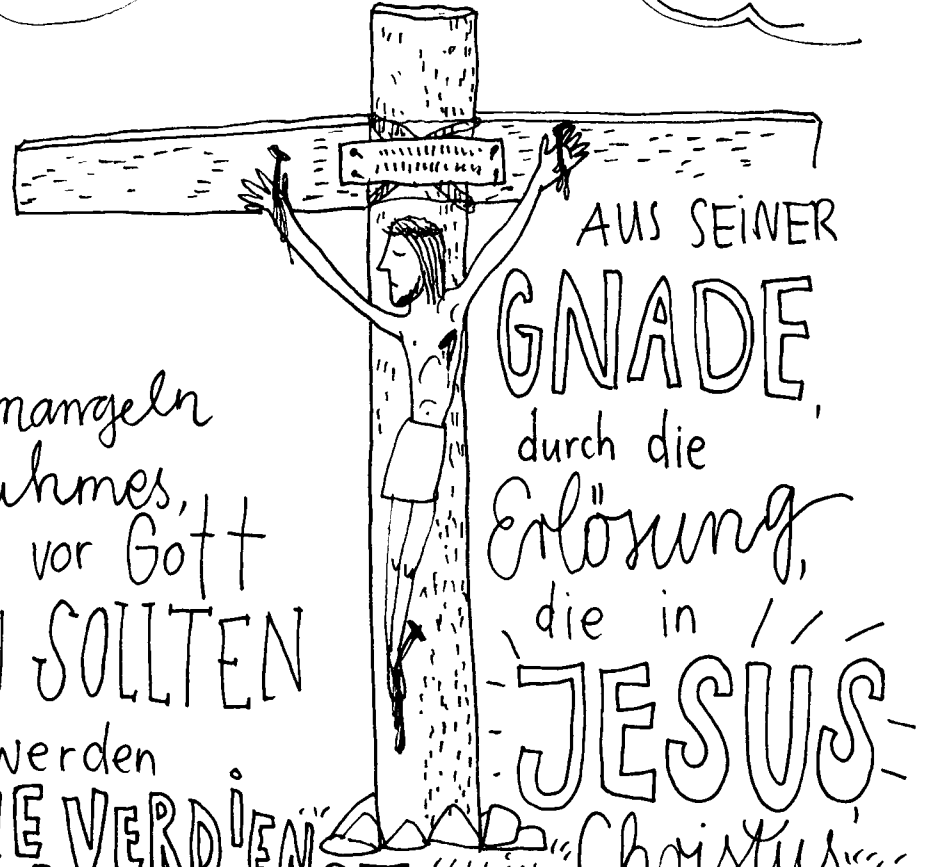 mangeln
uhmes,
vor Gott
SOLLTEN
werden
E VERDiEN
AUS SEiNER
GNADE,
durch die
Erlösung,
die in
JESUS
Christus